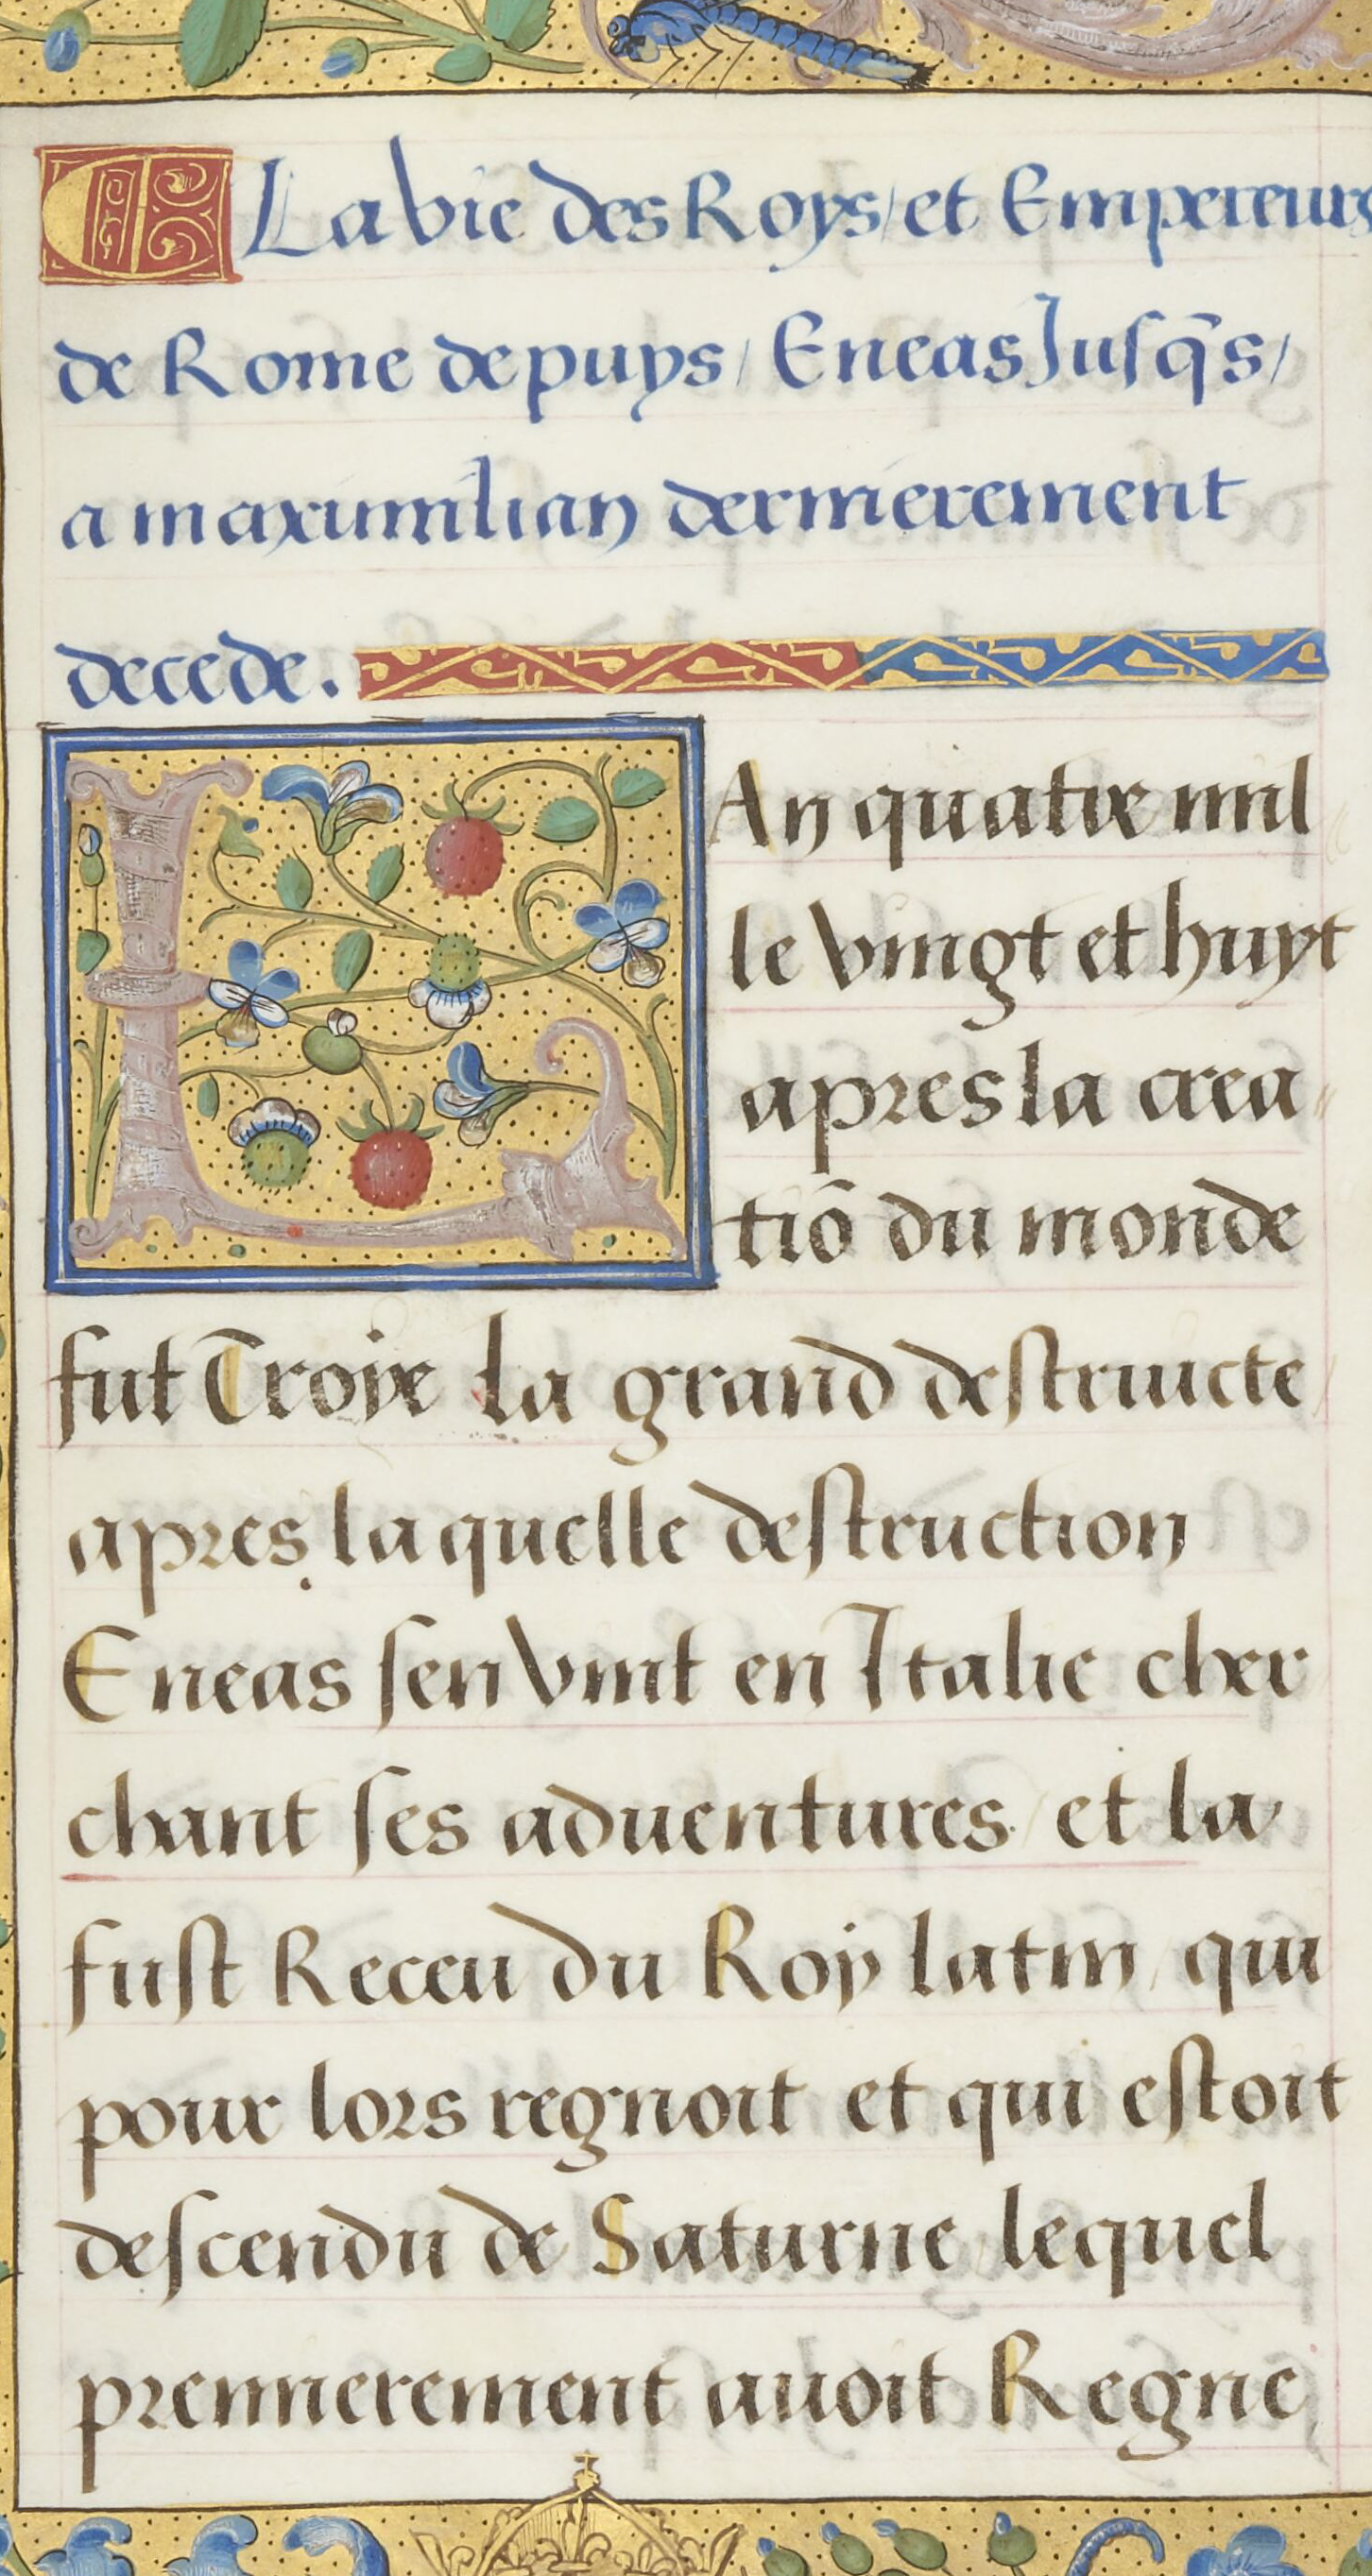 ¶ La vie des Roys / et Empereurs
de Rome depuys / Eneas Jusq̄s /
a maximilian dernierement
decede.
LAn quatre mil
le vingt et huyt
apres la crea
tiō du monde
fut Troye la grand destructe
apres laquelle destruction
Eneas sen vint en Italie cher
chant ses aduentures / et la
fust Receu du Roy latin / qui
pour lors regnoit et qui estoit
descendu de Saturne lequel
premierement auoit Regne